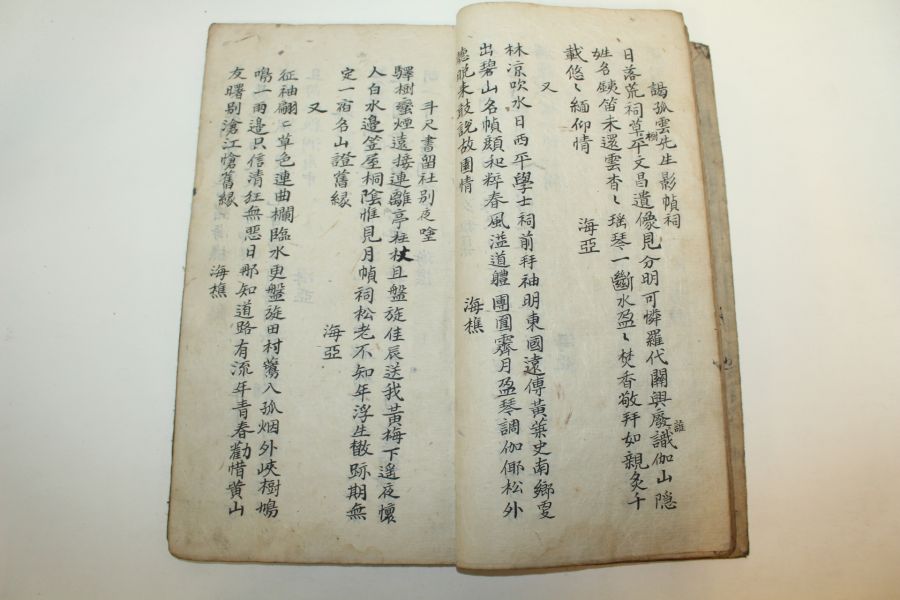 謁孤雲先生影幀祠
日落荒祠草樹平文昌遺像見分明可憐羅代關興廢誰識伽山隱
姓名鐵笛未還雲杳〻瑤琴一斷水盈〻焚香敬拜如親炙千
載悠〻緬仰情 海亞
又
林凉吹水日西平學士祠前拜袖明東國遠傳黃葉史南鄉叟
出碧山名幀顏和粹春風溢道軆團圓霽月盈琴調伽倻松外
聽晩來鼓說故國情 海樵
斗尺書留社別夜唫
驛樹蠻煙遠接連離亭拄杖且盤旋佳辰送我黃梅下遙夜懷
人白水邊笠屋桐陰惟見月幀祠松老不知年浮生轍跡期無
定一宿名山證舊緣 海亞
又
征袖翩〻草色連曲欄臨水更盤旋田村鶯入孤烟外峽樹鳩
鳴一雨邊只信清狂無惡日那知道路有流年青春勸惜黃山
友曙別滄江愴舊緣 海樵